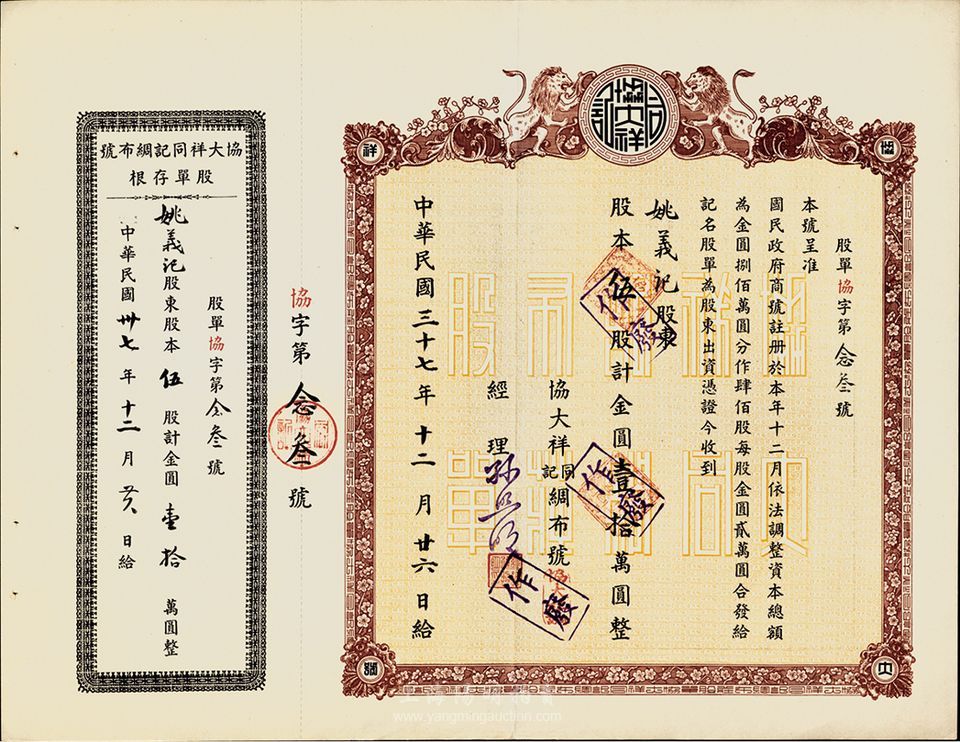 協大祥同記
協
大
祥
同
股單協字第念叁號
本號呈准
國民政府商號註册於本年十二月依法調整資本總額
為金圓捌佰萬圓分作肆佰股每股金圓貳萬圓合發給
記名股單為股東出資憑證今收到
姚義記股東
股本伍股計金圓壹拾萬圓整
協大祥同記綢布號
經理
中華民國三十七年十二月廿六日給
作廢
作廢
作廢
協大祥同記綢布號股單
協字第念叁號
協大祥同記綢布號
股單存根
股單協字第念叁號
姚義記股東股本伍股計金圓壹拾萬圓整
中華民國卅七年十二月廿六日給
www.yangmingauction.com